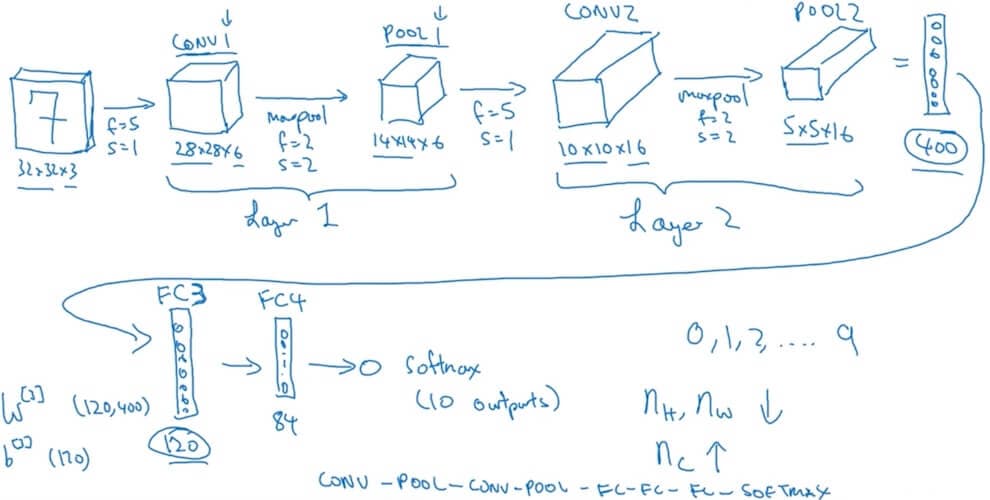 CONV1
POOL1
CONV2
POOL2
7
f=5
s=1
maxpool
f=2
s=2
f=5
s=1
maxpool
f=2
s=2
=
32×32×3
28×28×6
14×14×6
10×10×16
5×5×16
400
Layer 1
Layer 2
FC3
FC4
0,1,2,.... 9
softmax
(10 outputs)
(120,400)
120
84
(120)
n_H, n_W ↓
n_C ↑
CONV-POOL-CONV-POOL-FC-FC-FC-SOFTMAX